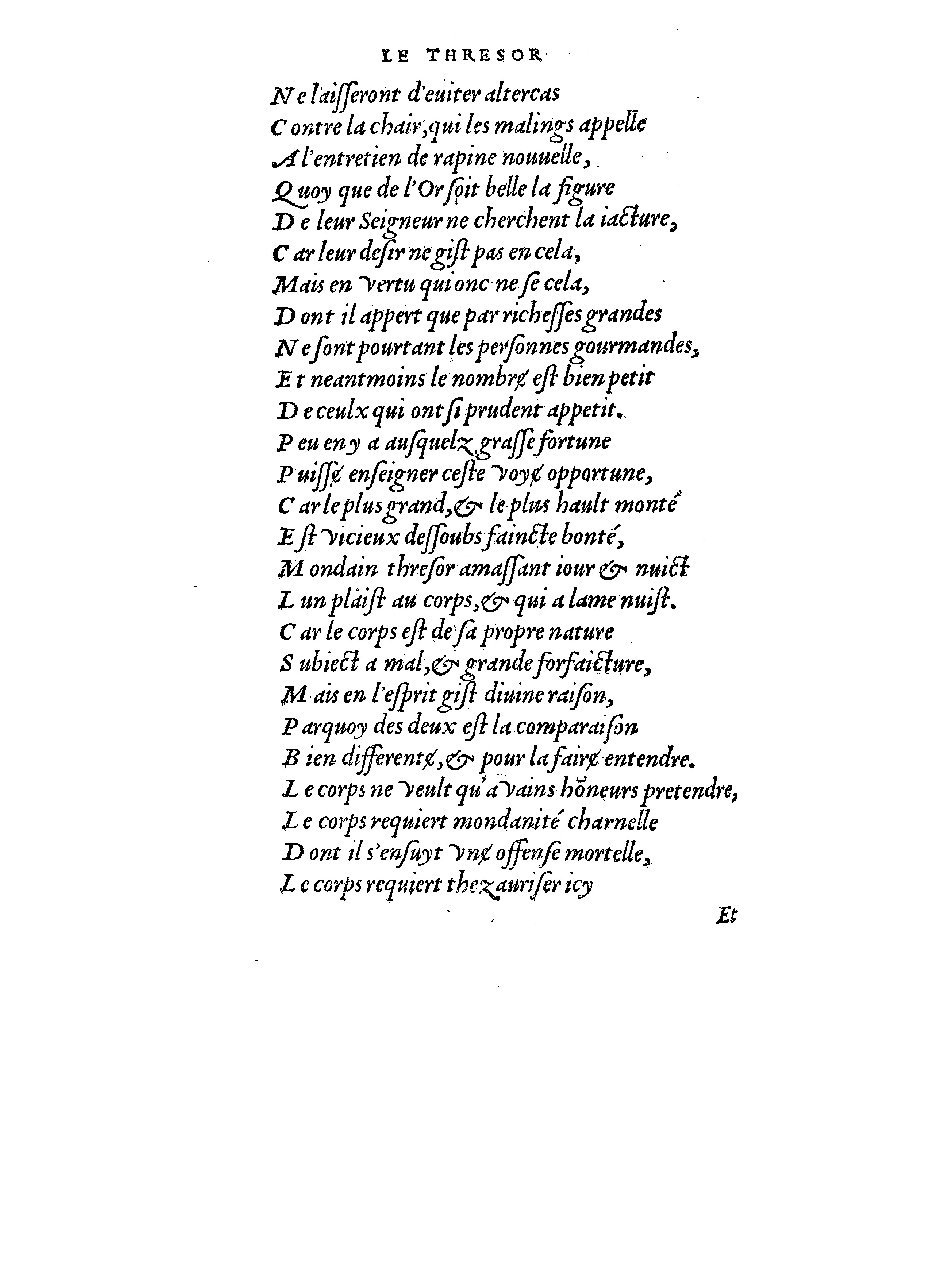 LE THRESOR
Ne laiſſeront d'euiter altercas
Contre la chair, qui les malings appelle
A l'entretien de rapine nouuelle,
Quoy que de l'Or ſoit belle la figure
De leur Seigneur ne cherchent la iacture,
Car leur deſir ne giſt pas en cela,
Mais en vertu qui onc ne ſe cela,
Dont il appert que par richeſſes grandes
Ne ſont pourtant les perſonnes gourmandes,
Et neantmoins le nombrɇ eſt bien petit
De ceulx qui ont ſi prudent appetit.
Peu en y a auſquelz graſſe fortune
Puiſſɇ enſeigner ceſte voyɇ opportune,
Car le plus grand, & le plus hault monté
Eſt vicieux deſſoubs faincte bonté,
Mondain threſor amaſſant iour & nuict
Lun plaiſt au corps, & qui a lame nuiſt.
Car le corps eſt de ſa propre nature
Subiect a mal, & grande forfaicture,
Mais en l'eſprit giſt diuine raiſon,
Parquoy des deux eſt la comparaiſon
Bien differentɇ, & pour la fairɇ entendre.
Le corps ne veult qu'a vains hõneurs pretendre,
Le corps requiert mondanité charnelle
Dont il s'enſuyt vnɇ offenſe mortelle,
Le corps requiert thezauriſer icy
Et